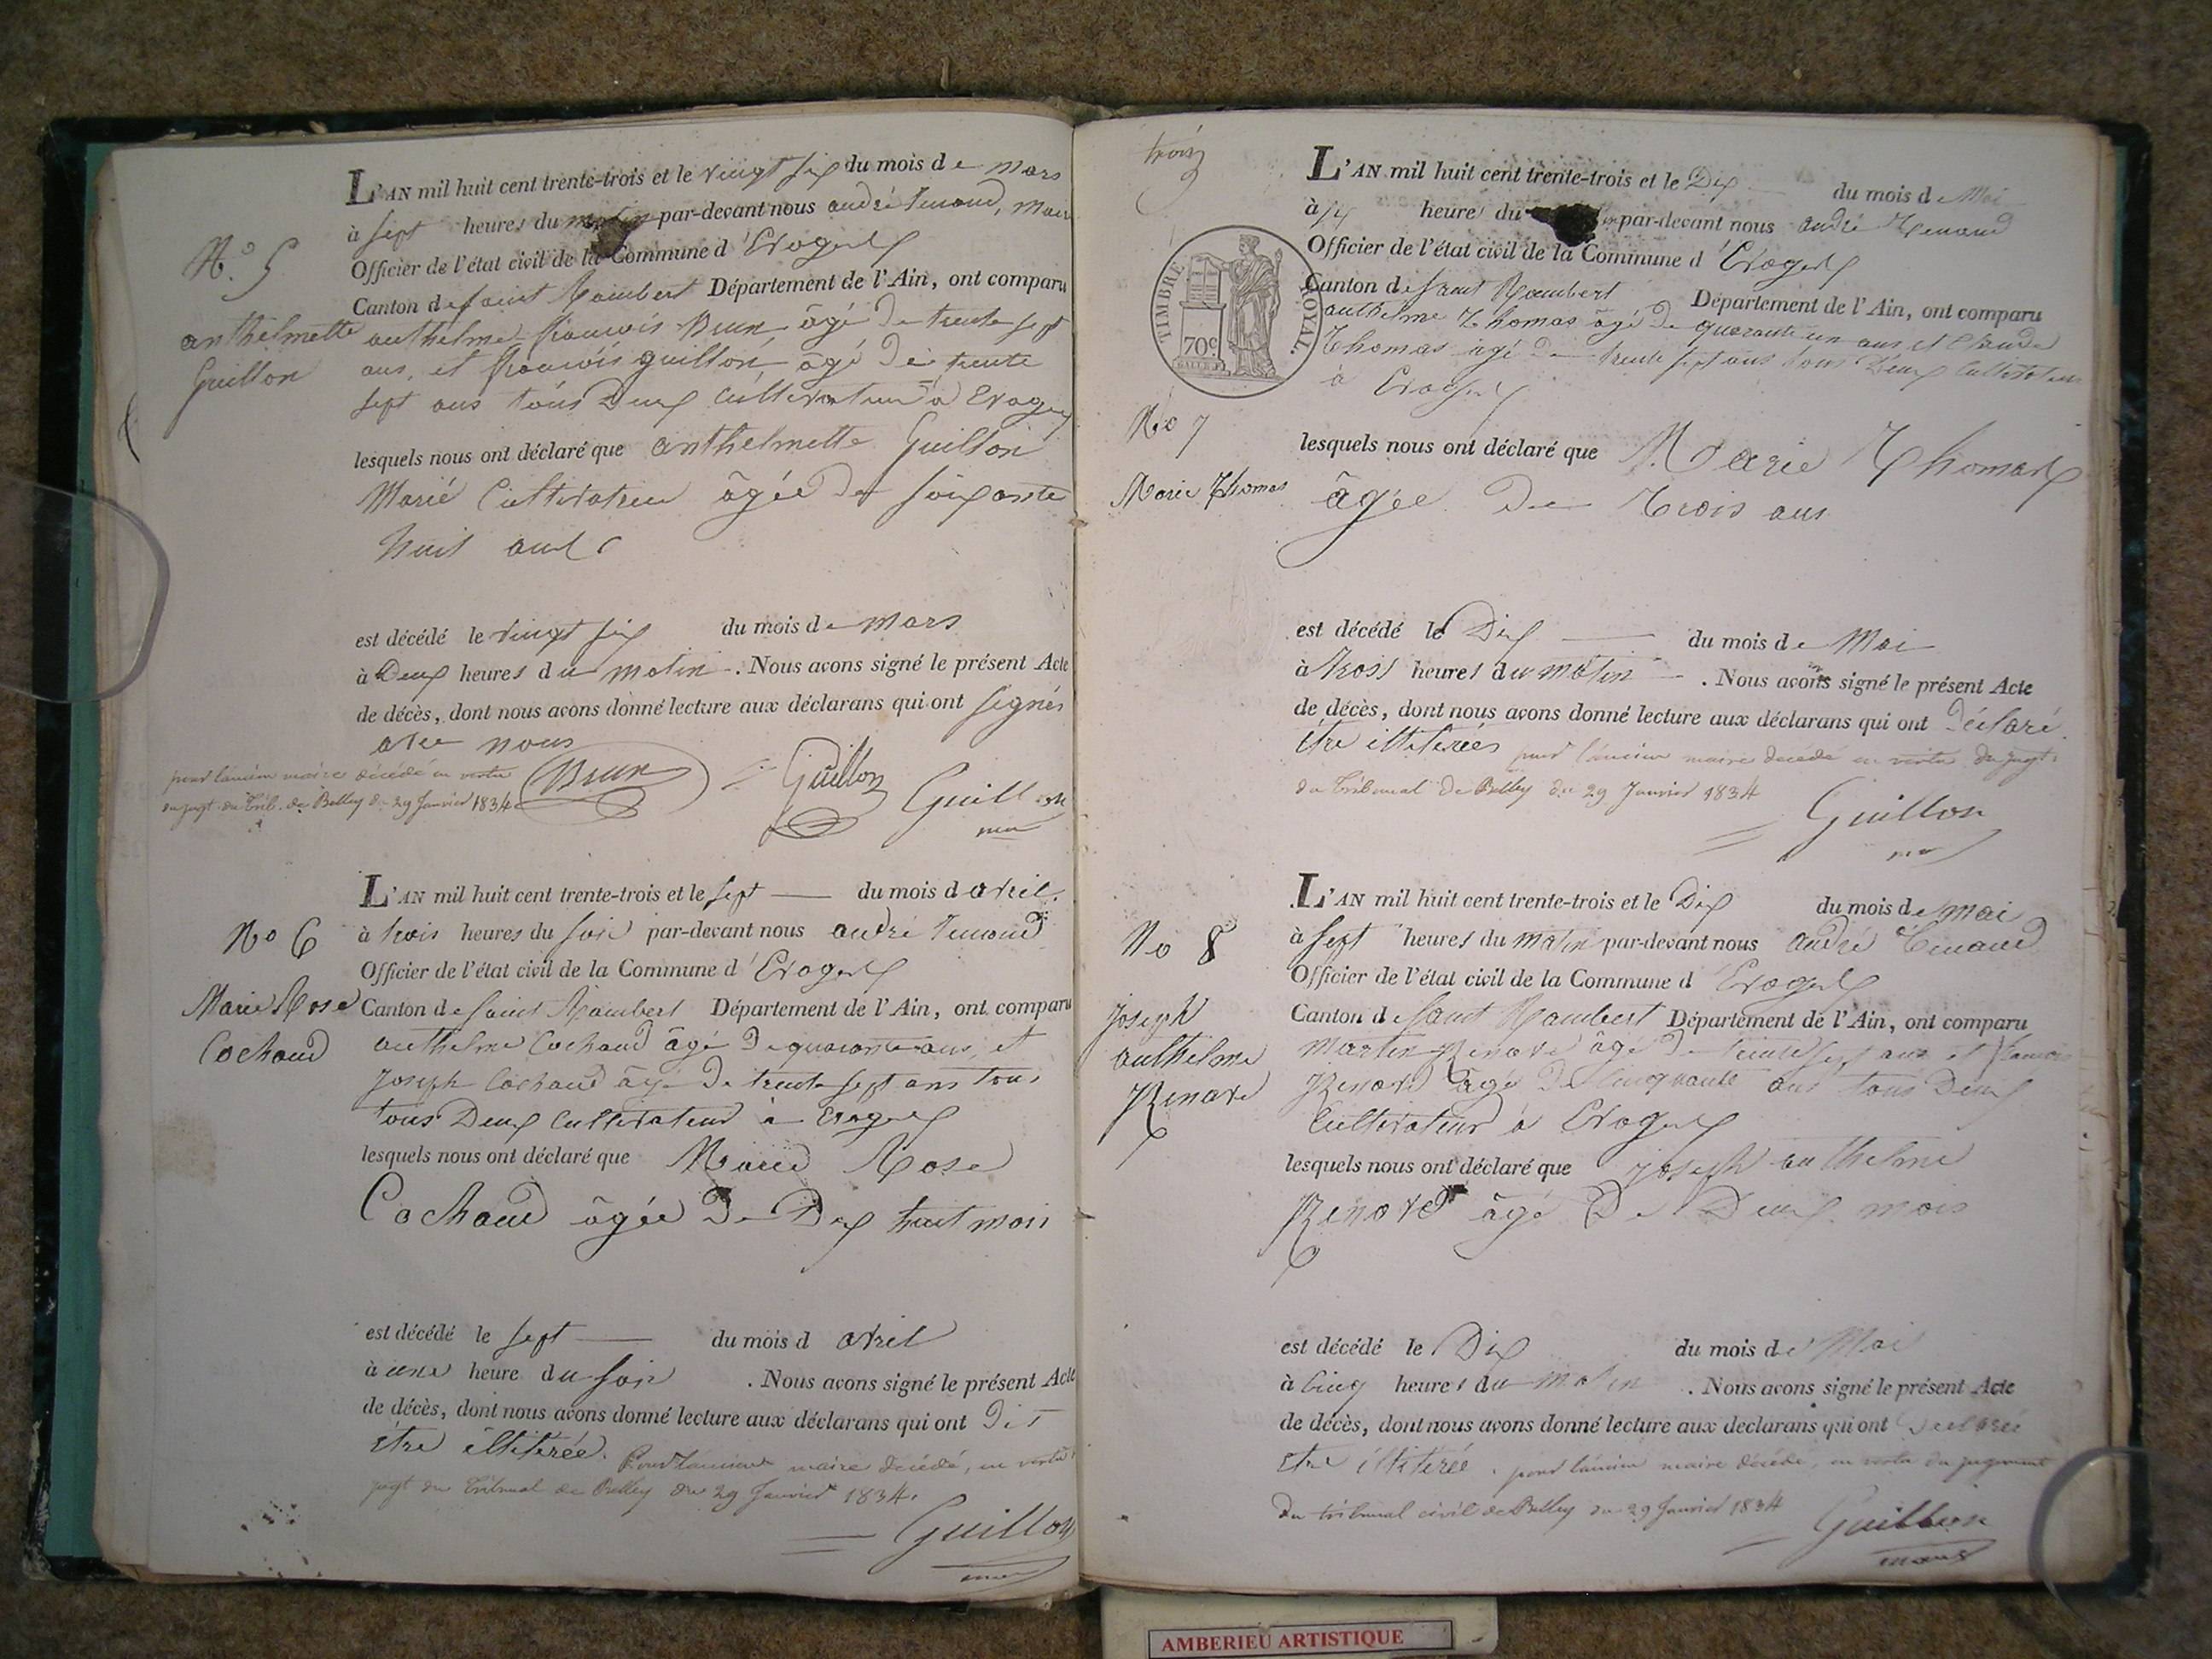 L'AN mil huit cent trente-trois et le vingt six du mois de mars
à sept heures du matin par-devant nous andré tenand, maire
Officier de l'état civil de la Commune d'Evoges
Canton de saint Rambert Département de l'Ain, ont comparu
anthelme françois Brun âgé de trente sept
ans, et françois guillon âgé de trente
sept ans tous deux Cultivateur à Evoges
N.º 5
anthelmette
Guillon
lesquels nous ont déclaré que anthelmette Guillon
Marié Cultivatrice âgée de soixante
huit ans
est décédé le vingt six du mois de mars
à Deux heures du matin. Nous avons signé le présent Acte
de décès, dont nous avons donné lecture aux déclarans qui ont signés
avec nous
pour l'ancien maire décédé en vertu
du jugt. du Trib. de Belley du 29 Janvier 1834
Brun Guillon Guillon
L'AN mil huit cent trente-trois et le sept du mois d avril.
à trois heures du soir par-devant nous andré tenand
Officier de l'état civil de la Commune d'Evoges
Canton de saint Rambert Département de l'Ain, ont comparu
anthelme Cochand âgé de quarante ans, et
joseph Cochand âgé de trente sept ans tous
tous Deux Cultivateur à Evoges
No 6
Marie Rose
Cochand
lesquels nous ont déclaré que Marie Rose
Cochand âgée de Dix huit mois
est décédé le sept du mois d avril
à une heure du soir. Nous avons signé le présent Acte
de décès, dont nous avons donné lecture aux déclarans qui ont Dit
être illitérée. Pour l'ancien maire décédé, en vertu
jugt du Tribunal de Belley du 29 Janvier 1834.
Guillon
trois
L'AN mil huit cent trente-trois et le Dix du mois de Mai
à six heures du par-devant nous andré Tenand
Officier de l'état civil de la Commune d'Evoges
Canton de saint Rambert Département de l'Ain, ont comparu
anthelme Thomas âgé de quarante un ans et Claude
Thomas âgé de trente sept ans tous Deux Cultivateur
à Evoges
TIMBRE ROYAL.
70c
No 7
Marie Thomas
lesquels nous ont déclaré que Marie Thomas
âgée De Trois ans
est décédé le Dix du mois de Mai
à trois heures du matin. Nous avons signé le présent Acte
de décès, dont nous avons donné lecture aux déclarans qui ont déclaré
être illiterées pour l'ancien maire decédé en vertu du jugt.
du Tribunal de Belley du 29 Janvier 1834
Guillon
L'AN mil huit cent trente-trois et le Dix du mois de mai
à sept heures du matin par-devant nous andré Tenand
Officier de l'état civil de la Commune d'Evoges
Canton de saint Rambert Département de l'Ain, ont comparu
martin Renove âgé de trente sept ans et françois
Renove âgé de Cinquante ans tous Deux
Cultivateur à Evoges
No 8
Joseph
anthelme
Renove
lesquels nous ont déclaré que joseph anthelme
Renove âgé De Deux mois
est décédé le Dix du mois de Mai
à Cinq heures du matin. Nous avons signé le présent Acte
de décès, dont nous avons donné lecture aux declarans qui ont declarée
etre illitérée. pour l'ancien maire décédé, en vertu du jugement
du tribunal civil de Belley du 29 Janvier 1834
Guillon
maire
AMBERIEU ARTISTIQUE